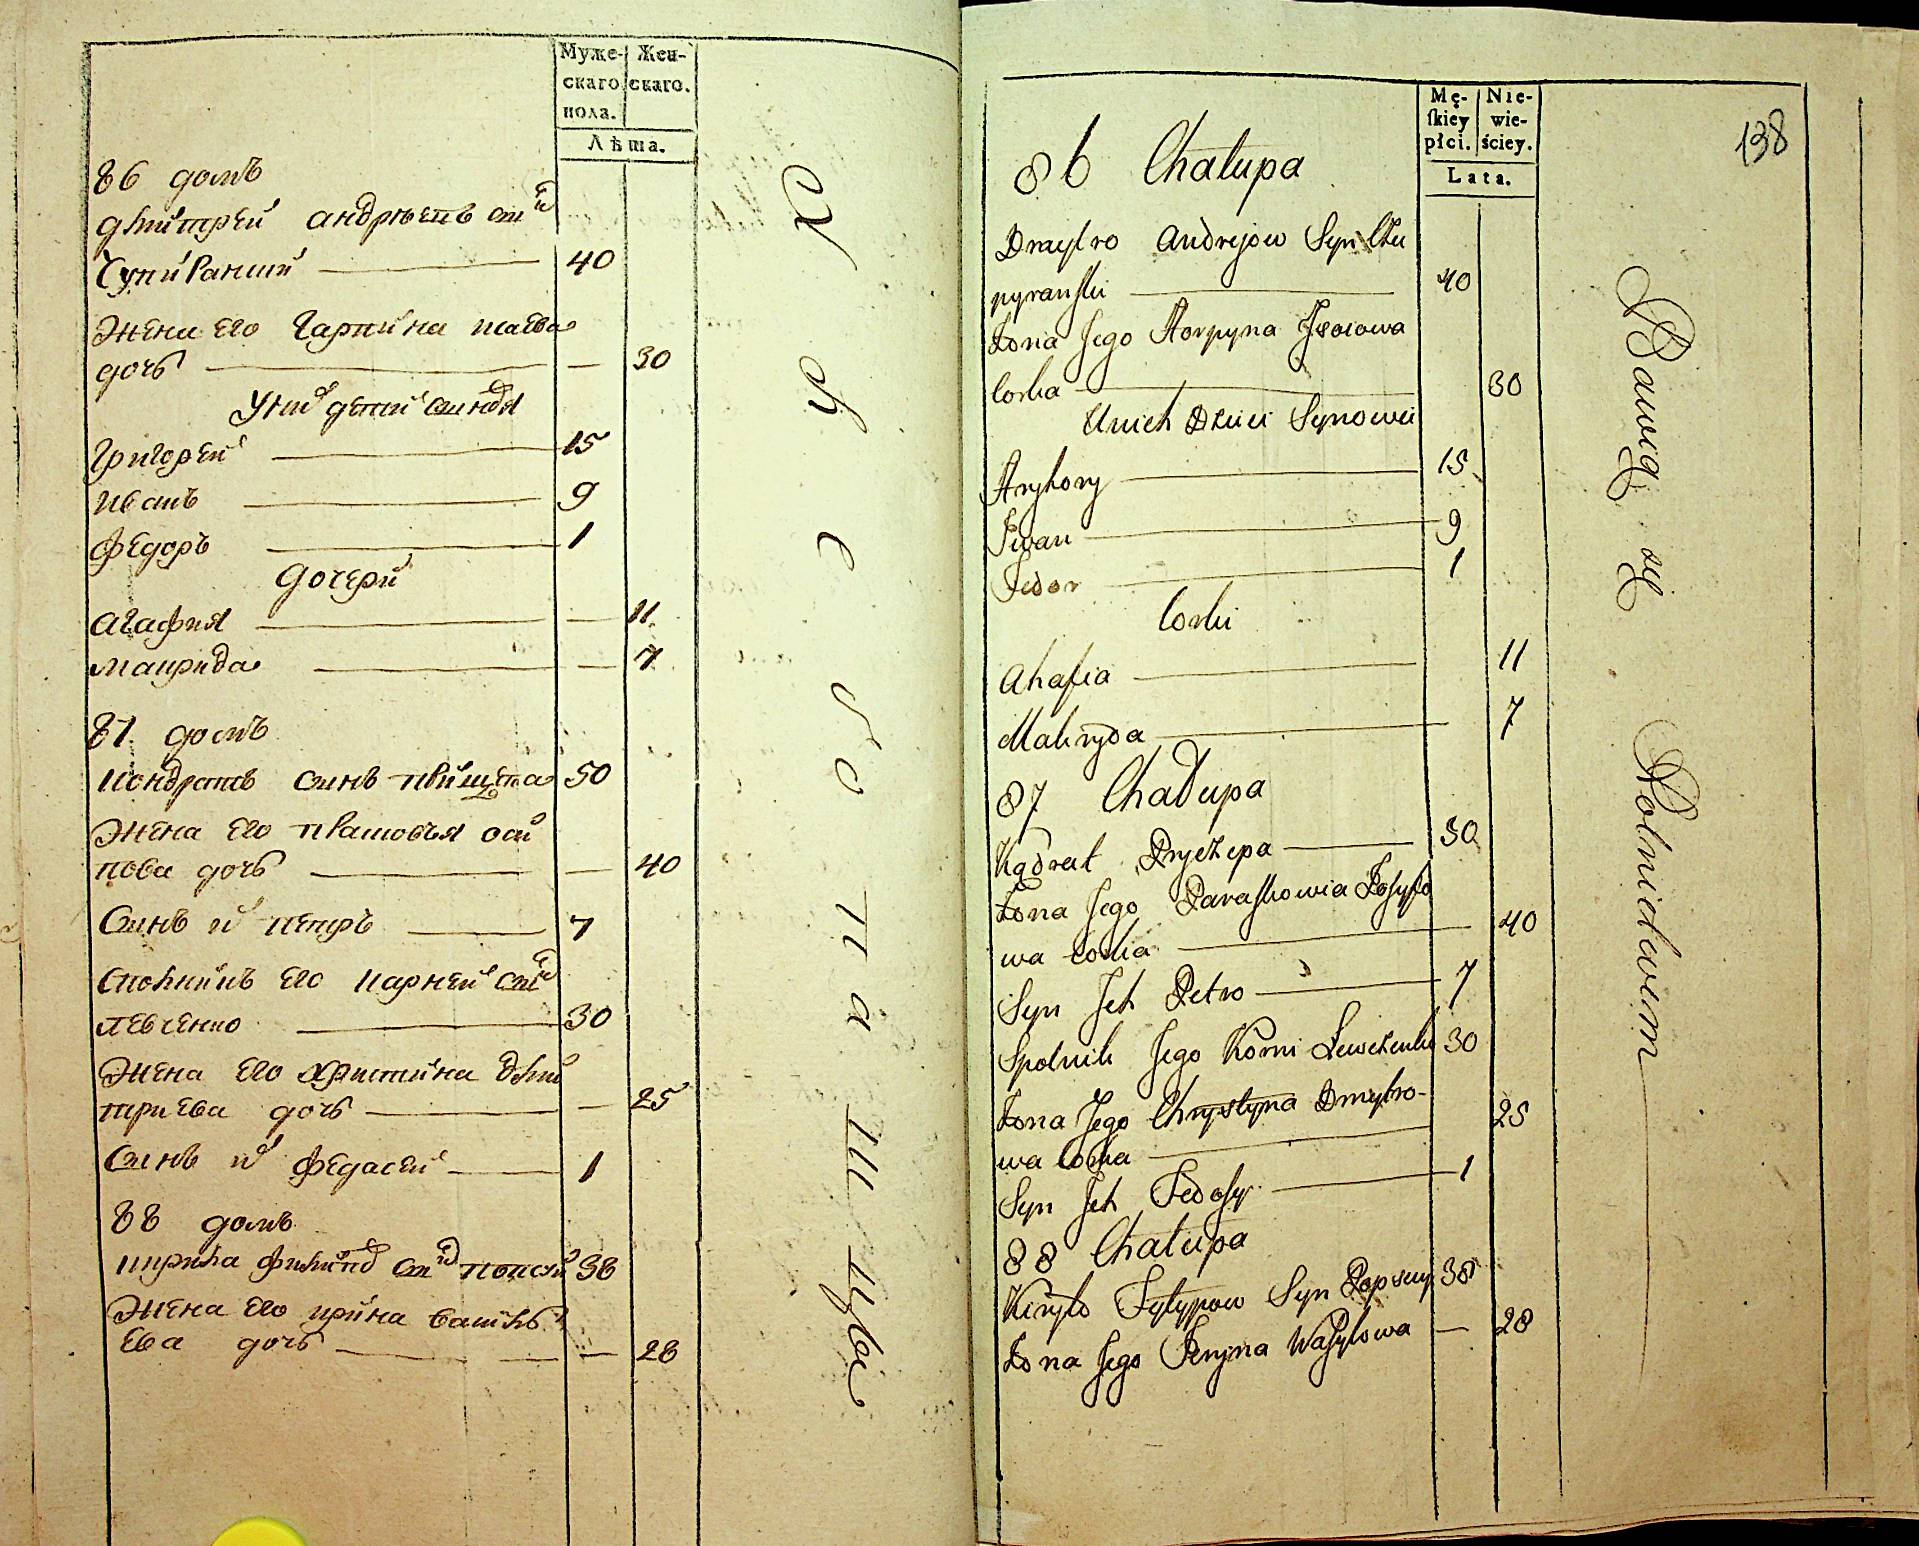 Муже-
скаго
пола.
Жен-
скаго.
Лѣта.
86 домъ
дмитрей андрѣевъ син
Чупираний 40
Жена Его Гарпина
дочь 30
Григорей 15
иванъ 9
федоръ 1
дочери
агафия 11
макрида 7
87 домъ
кондратъ синъ прищепа 50
Жена Его прасковъя оси
пова дочь 40
Синъ и петръ 7
Споłникъ Его карней
левченко 30
Жена Его христина дми
триева дочь 25
Синъ и федасей 1
88 домъ
кирила филипов син попсуй 38
Жена Его ирина василь
Ева дочь 28
Хлебопашцы
Mę-
skiey
płci.
Nie-
wie-
ściey.
Lata.
138
86 Chałupa
Dmytro Andrejow Syn Czu
pyranski 40
Żona Jego Horpyna Isaiowa
Corka 30
Unich Dzieci Synowie
Hryhory 15
Iwan 9
Fedor 1
Corki
Ahafia 11
Makryda 7
87 Chałupa
Kądrat Pryszczepa 50
Żona Jego Paraskowia Josypo
wa Corka 40
Syn Jch Petro 7
Spolnik Jego Korni Lewczenko 30
Żona Jego Chrystyna Dmytro-
wa Corka 25
Syn Jch Fedosy 1
88 Chałupa
Kiryło Fyłypow Syn Popsuy 38
Żona Jego Jeryna Wasylowa 28
Bawią się Rolnictwem